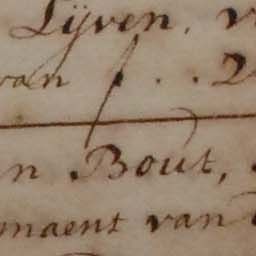 Lijven, v
van ƒ . . 2
n Bout,
maent van